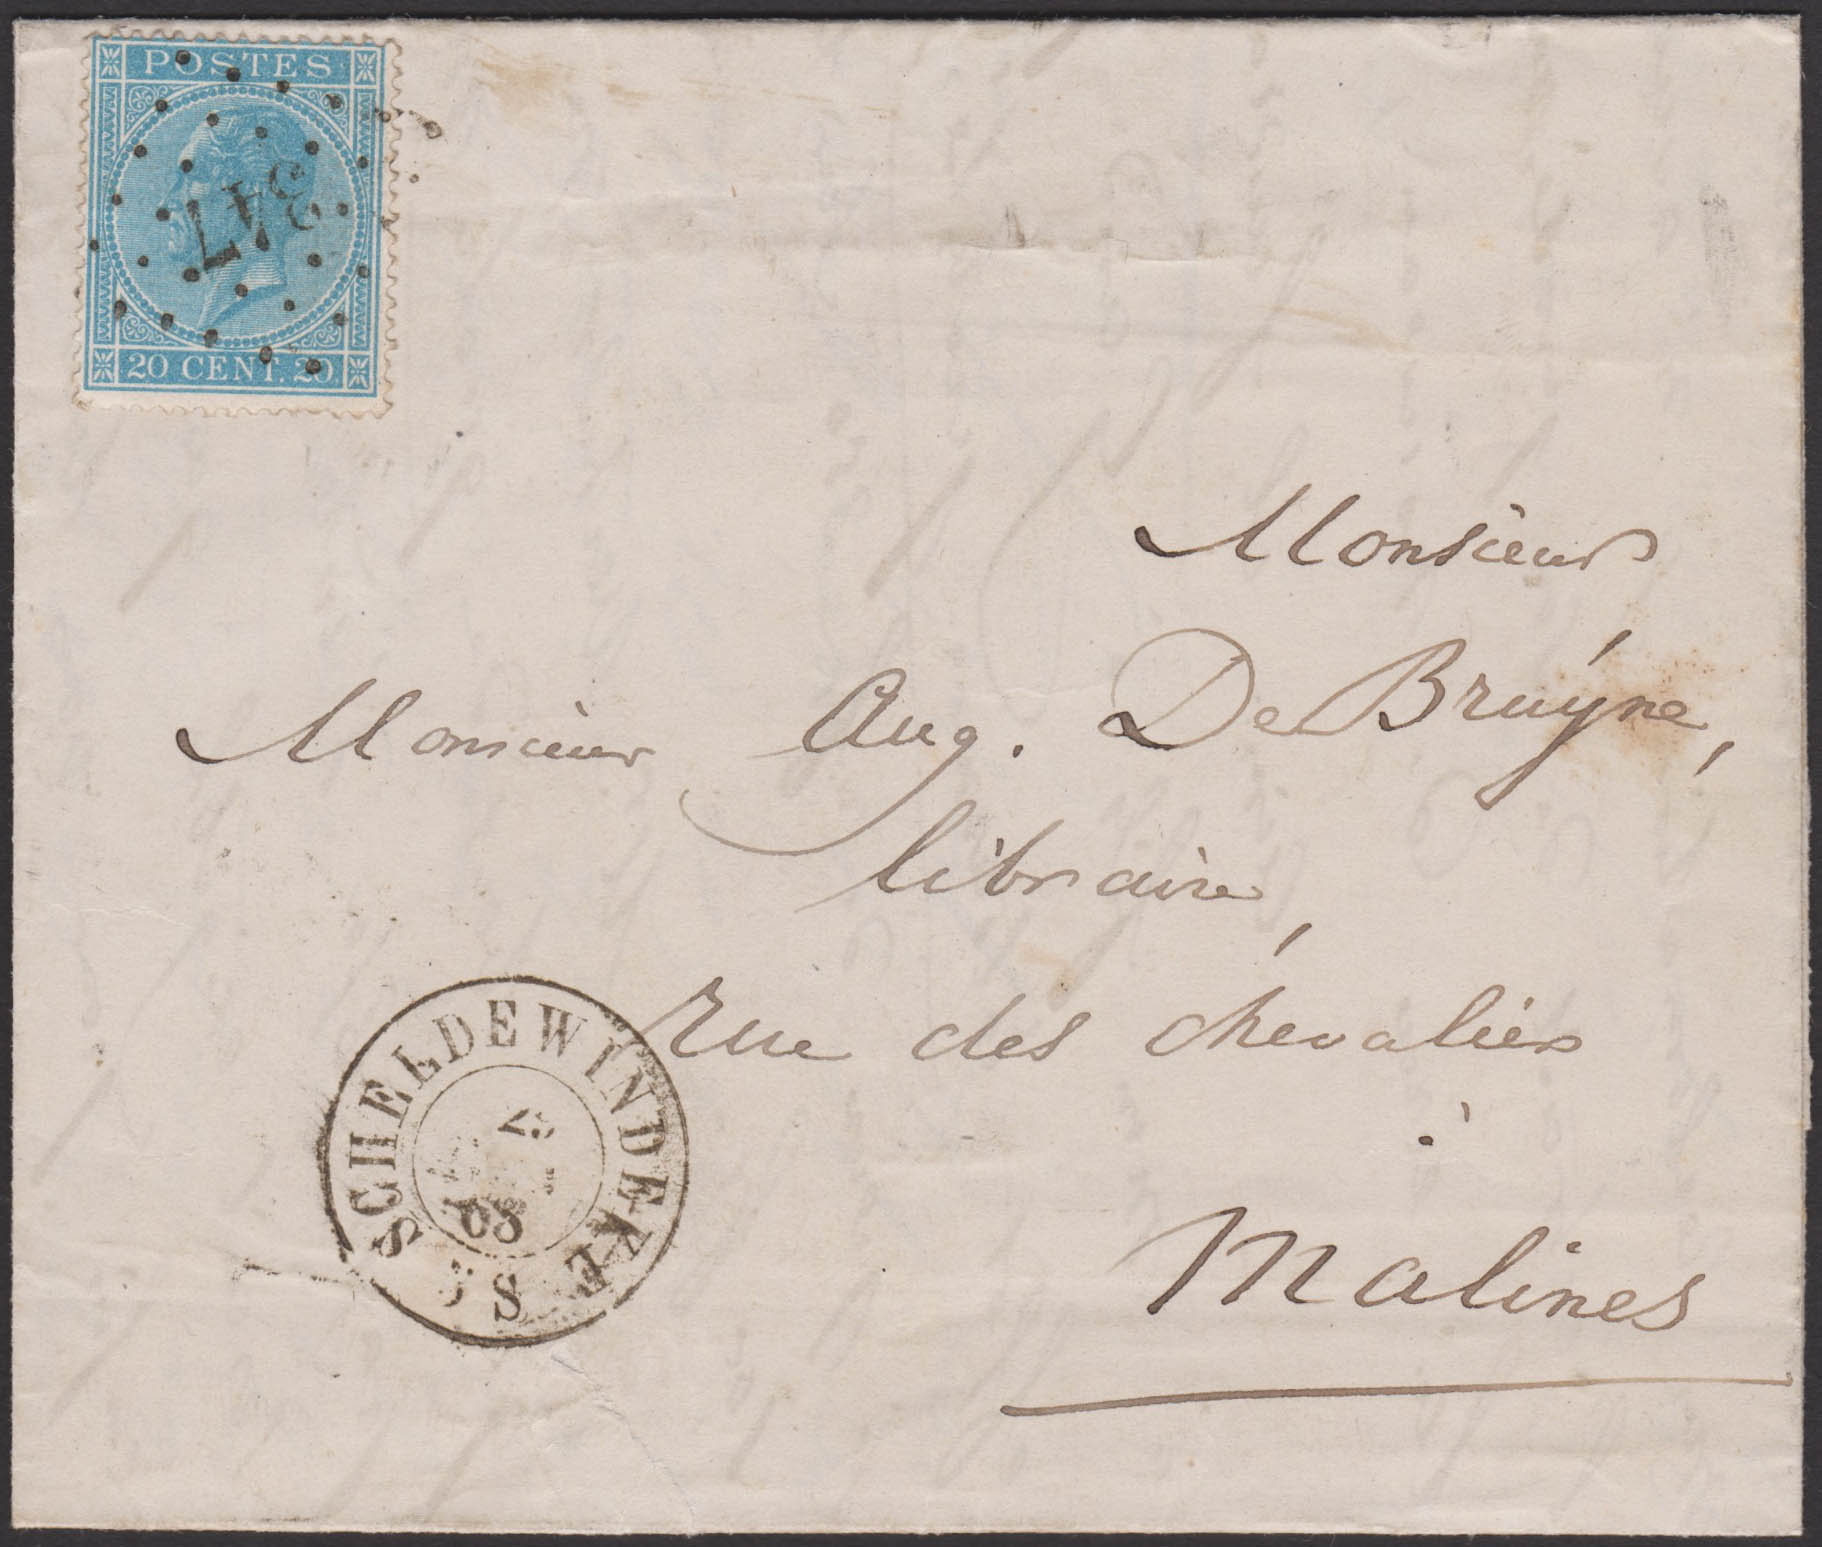 POSTES
347
20 CENT. 20.
Monsieur
Monsieur Aug. De Bruÿne,
libraire,
rue des chevaliers
à
Malines
SCHELDEWINDEKE
68